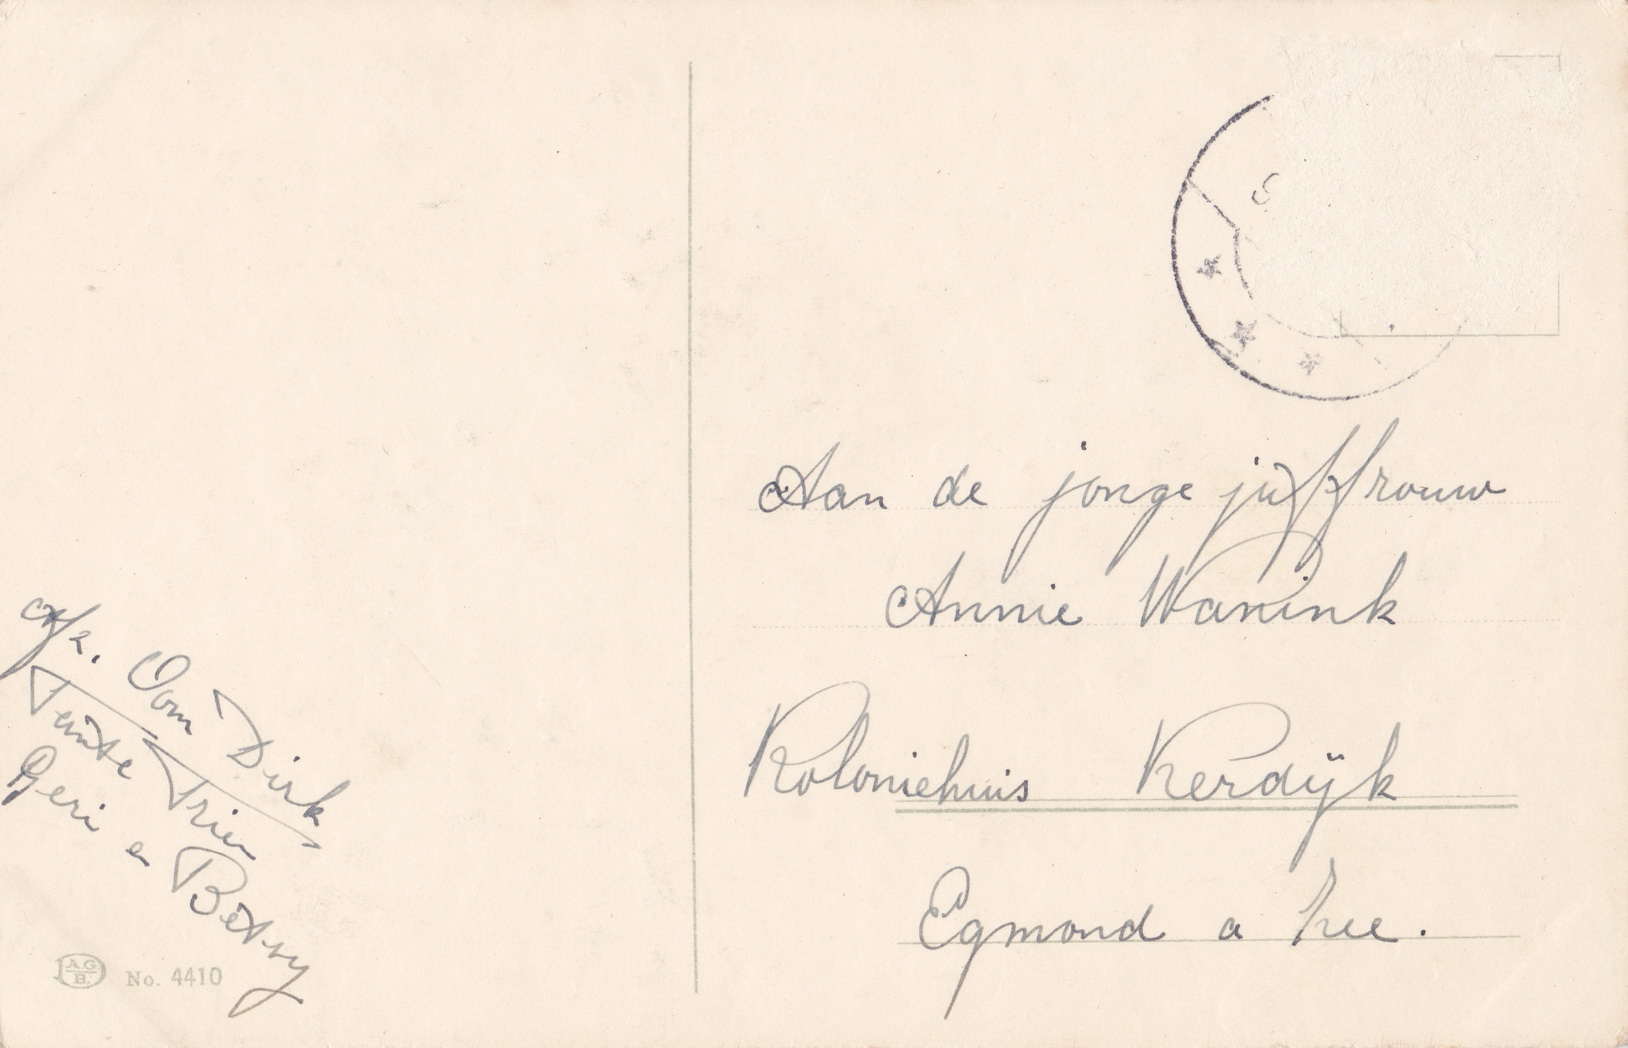 Afz. Oom Dirk
Tante Trien
Geri en Betsy
A.G.
B.
No. 4410
S
Aan de jonge juffrouw
Annie Wanink
Koloniehuis Kerdijk
Egmond a Zee.